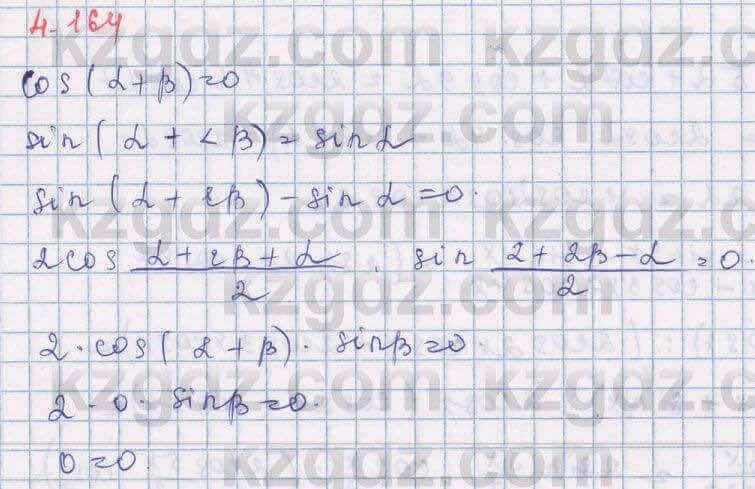 4.164
cos(α+β)=0
sin(α+<β)=sin α
sin(α+2β)-sin α=0.
2cos (α+2β+α)/2 · sin (2+2β-α)/2 =0.
2·cos(α+β)·sinβ=0.
2·0·sinβ=0.
0=0.
kzgdz.com
kzgdz.com
kzgdz.com
kzgdz.com
kzgdz.com
kzgdz.com